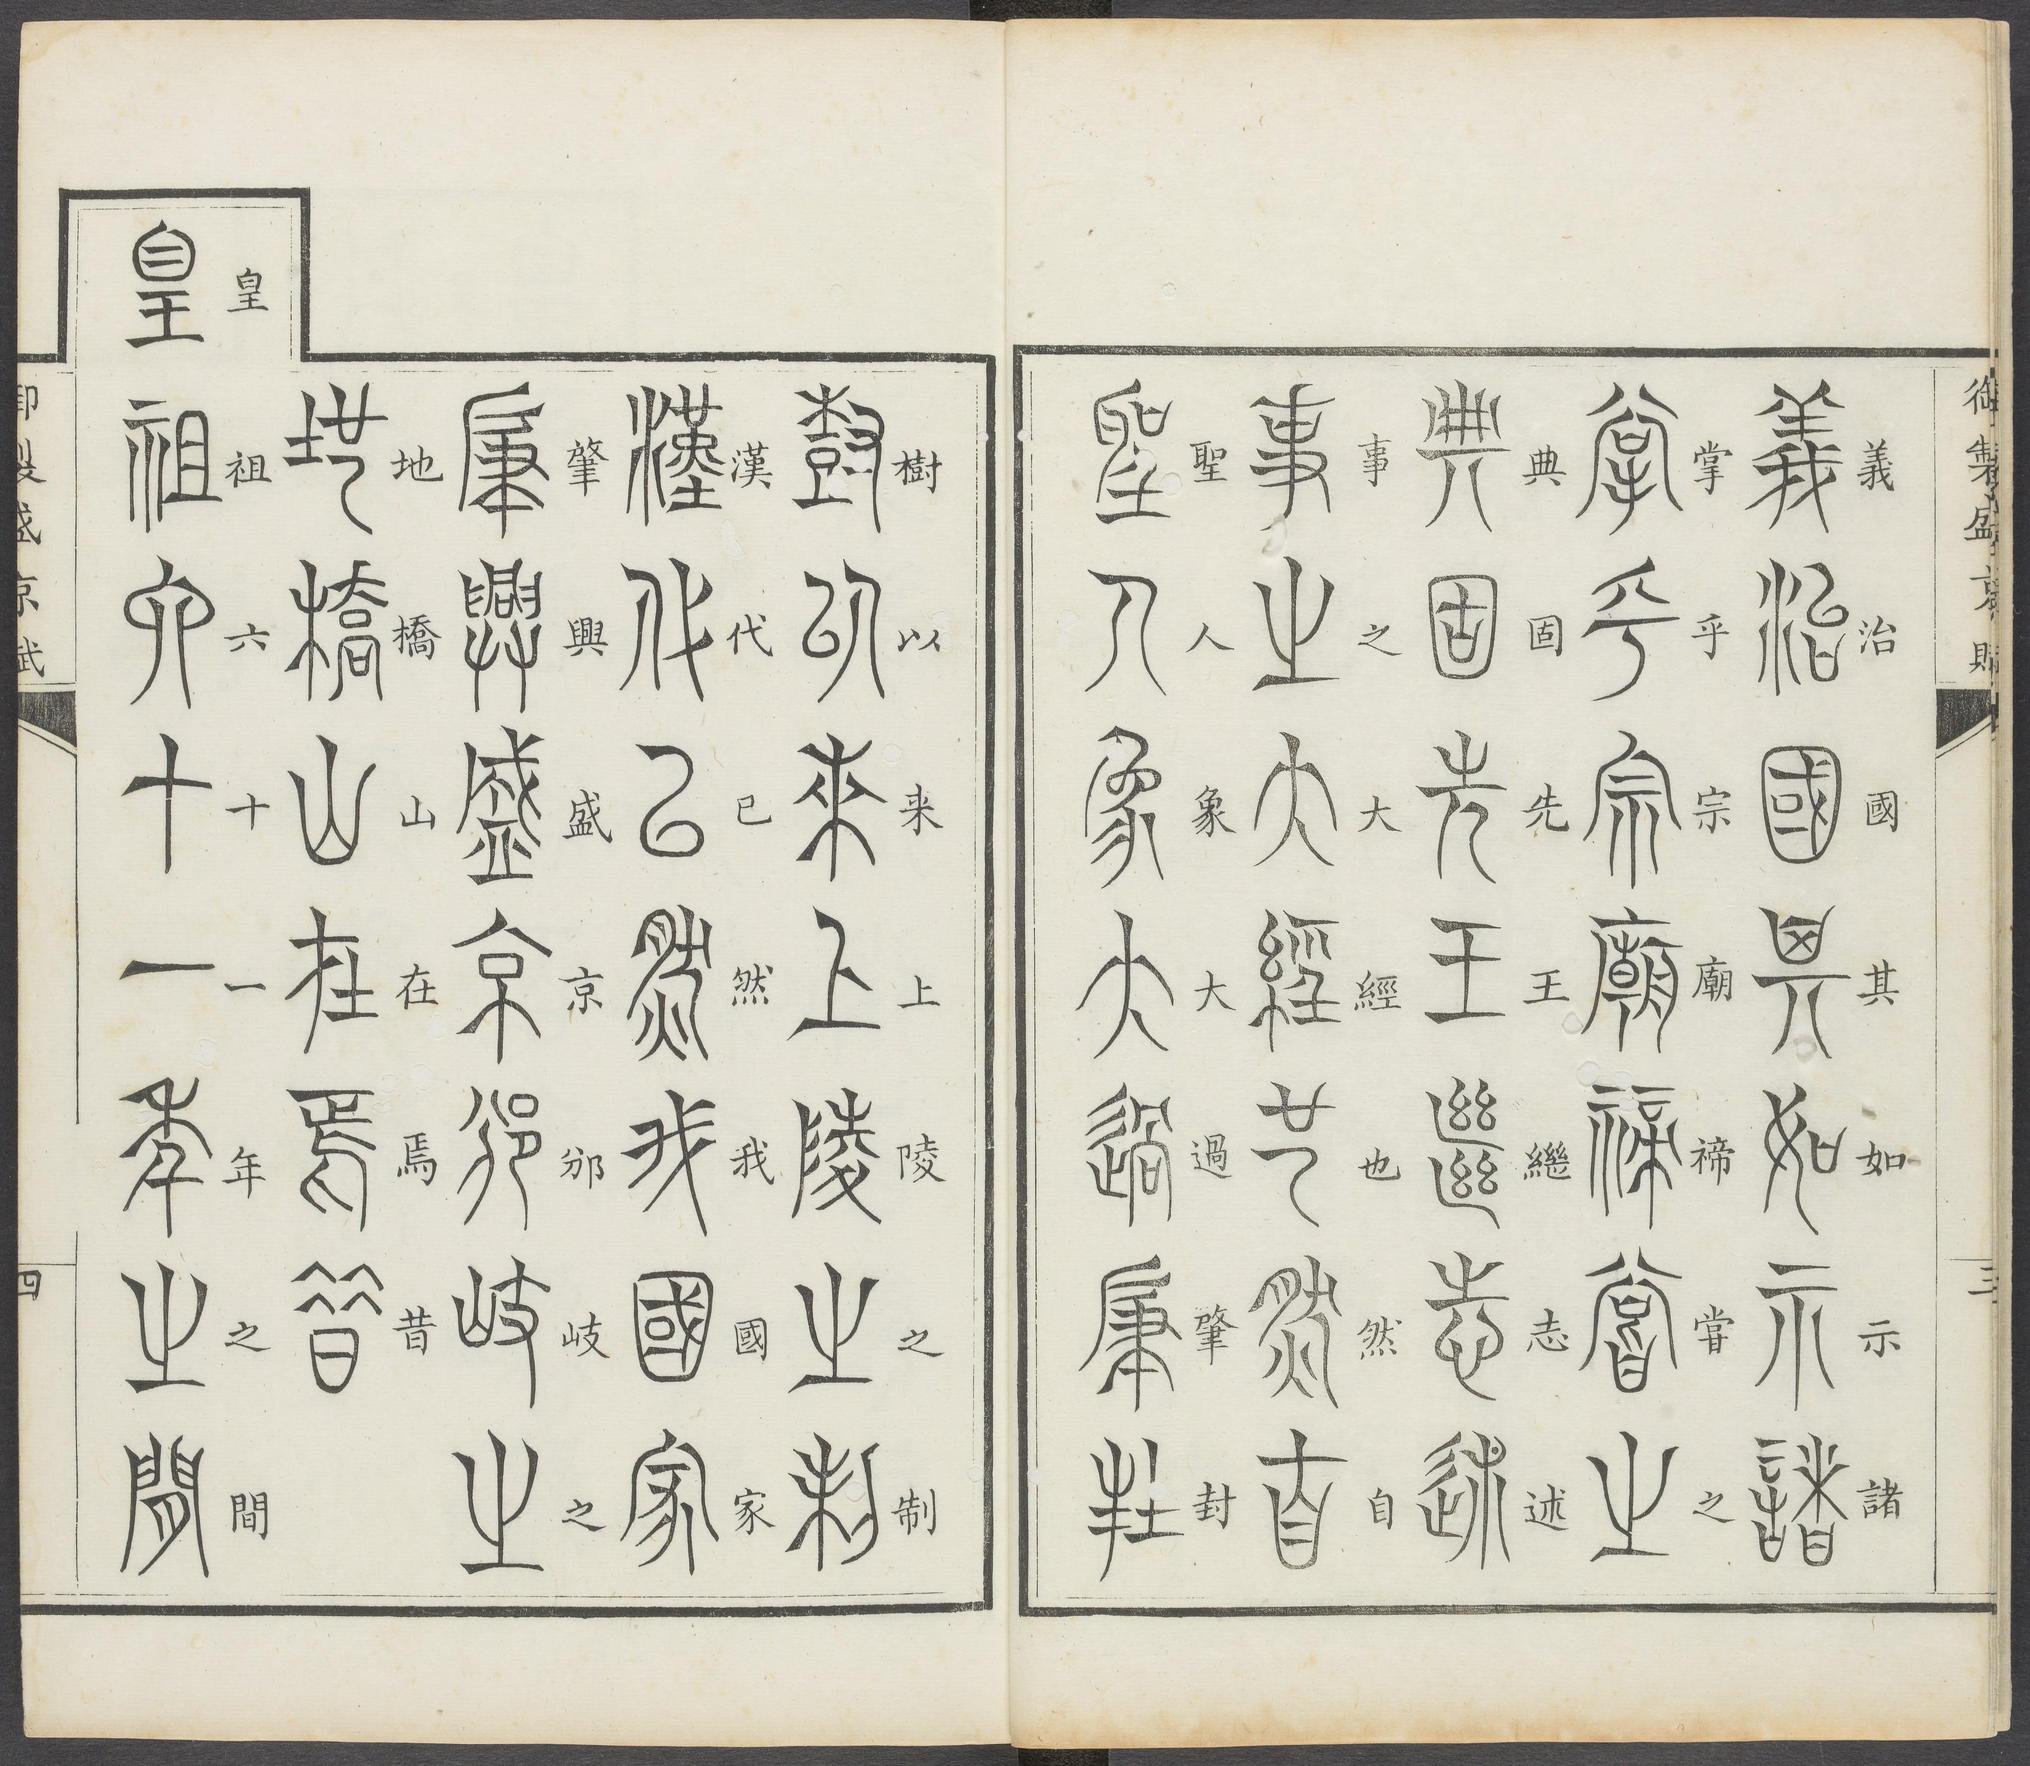 御製盛京賦
三
義治國其如示諸
掌乎宗廟禘甞之
典固先王繼志述
事之大經也然自
聖人象大過肇封
樹以来上陵之制
漢代已然我國家
肇興盛京邠岐之
地橋山在焉昔
皇祖六十一年之間
御製盛京賦
四